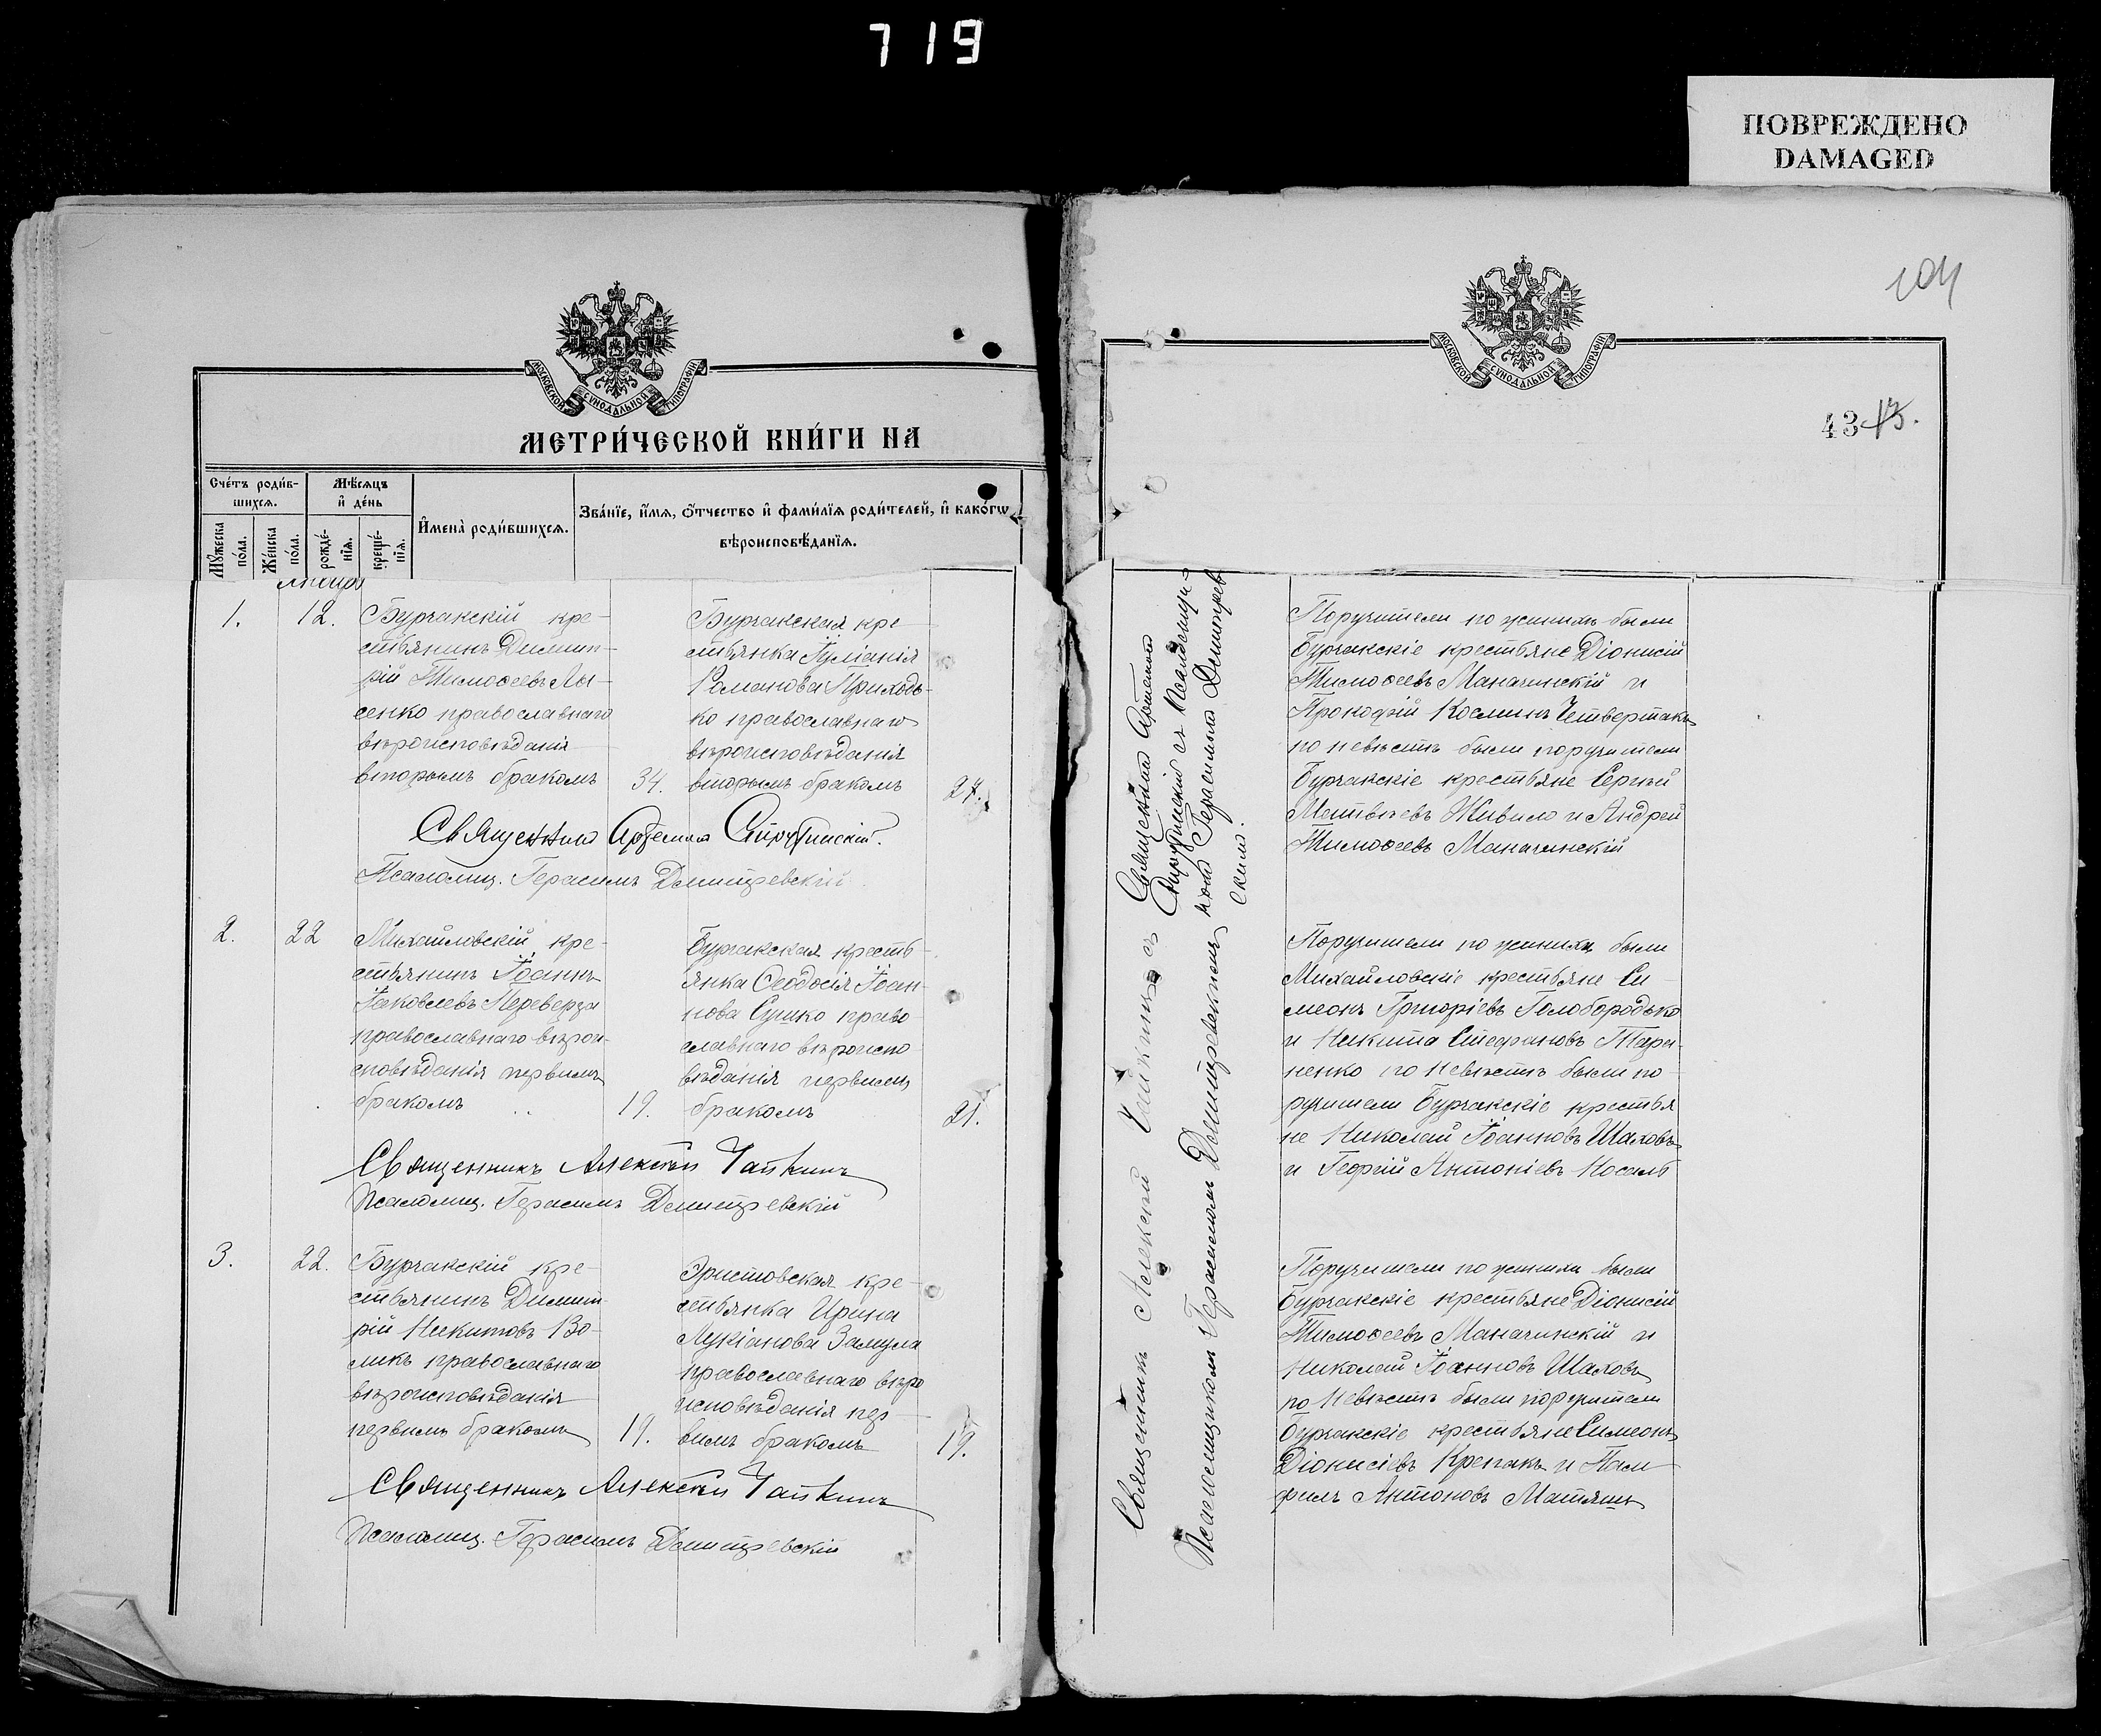 719
ПОВРЕЖДЕНО
DAMAGED
МОСКОВСКОЙ СѴНОДАЛЬНОЙ ТИПОГРАФІИ
МЕТРИ́ЧЕСКОЙ КНИ́ГИ НА
Сче́тъ роди́в-
шихсѧ.
Мѣ́сѧцъ
и҆ де́нь
Мꙋ́жеска
по́ла.
Же́нска
по́ла.
рожде́-
нїѧ.
креще́-
нїѧ.
И҆мена̀ роди́вшихсѧ.
Зва́нїе, и҆́мѧ, ѻ҆́тчество и҆ фами́лїѧ роди́телей, и҆ како́гѡ
вѣроисповѣ́данїѧ.
1. 12.
Бурчакскій кре-
стьянинъ Димит-
рій Тимоѳеевъ Лы-
сенко православнаго
вѣроисповѣданія
вторымъ бракомъ 34.
Бурчакская кре-
стьянка Іуліанія
Романова Приходь-
ко православнаго
вѣроисповѣданія
вторымъ бракомъ 27.
Священникъ
Псаломщ. Герасимъ Димитревскій
2. 22
Михайловскій кре-
стьянинъ Іоаннъ
Іаковлевъ Переверза
православнаго вѣрои-
сповѣданія первымъ
бракомъ 19.
Бурчакская кресть-
янка Ѳеодосія Іоан-
нова Сушко право
славнаго вѣроиспо
вѣданія первымъ
бракомъ 21.
Священникъ Алексѣй Чапкинъ
Псаломщ. Герасимъ Димитревскій
3. 22.
Бурчакскій кре-
стьянинъ Димит-
рій Никитовъ Во-
ликъ православнаго
вѣроисповѣданія
первымъ бракомъ 19.
Эристовская кре-
стьянка Ирина
Лукіанова Замула
православнаго вѣро
исповѣданія пер-
вымъ бракомъ 19.
Священникъ Алексѣй Чапкинъ
Псаломщ. Герасимъ Димитревскій
104
МОСКОВСКОЙ СѴНОДАЛЬНОЙ ТИПОГРАФІИ
43
Священникъ Алексѣй Чапкинъ съ
Псаломщикомъ Герасимомъ Димитревскимъ
Поручители по женихѣ были
Бурчакскіе крестьяне Діонисій
Тимоѳеевъ Маначинскій и
Прокофій Косминъ Четвертакъ
по невѣстѣ были поручители
Бурчакскіе крестьяне Сергѣй
Матвѣевъ Живило и Андрей
Тимоѳеевъ Маначинскій
Поручители по женихѣ были
Михайловскіе крестьяне Си-
меонъ Григоріевъ Голобородько
и Никита Стефановъ Тара-
ненко по невѣстѣ были по-
ручители Бурчакскіе крестья
не Николай Іоанновъ Шаховъ
и Георгій Антоніевъ Носаль
Поручители по женихѣ были
Бурчакскіе крестьяне Діонисій
Тимоѳеевъ Маначинскій и
Николай Іоанновъ Шаховъ
по невѣстѣ были поручители
Бурчакскіе крестьяне Симеонъ
Діонисіевъ Крепакъ и Пам-
филъ Антоновъ Матяшъ